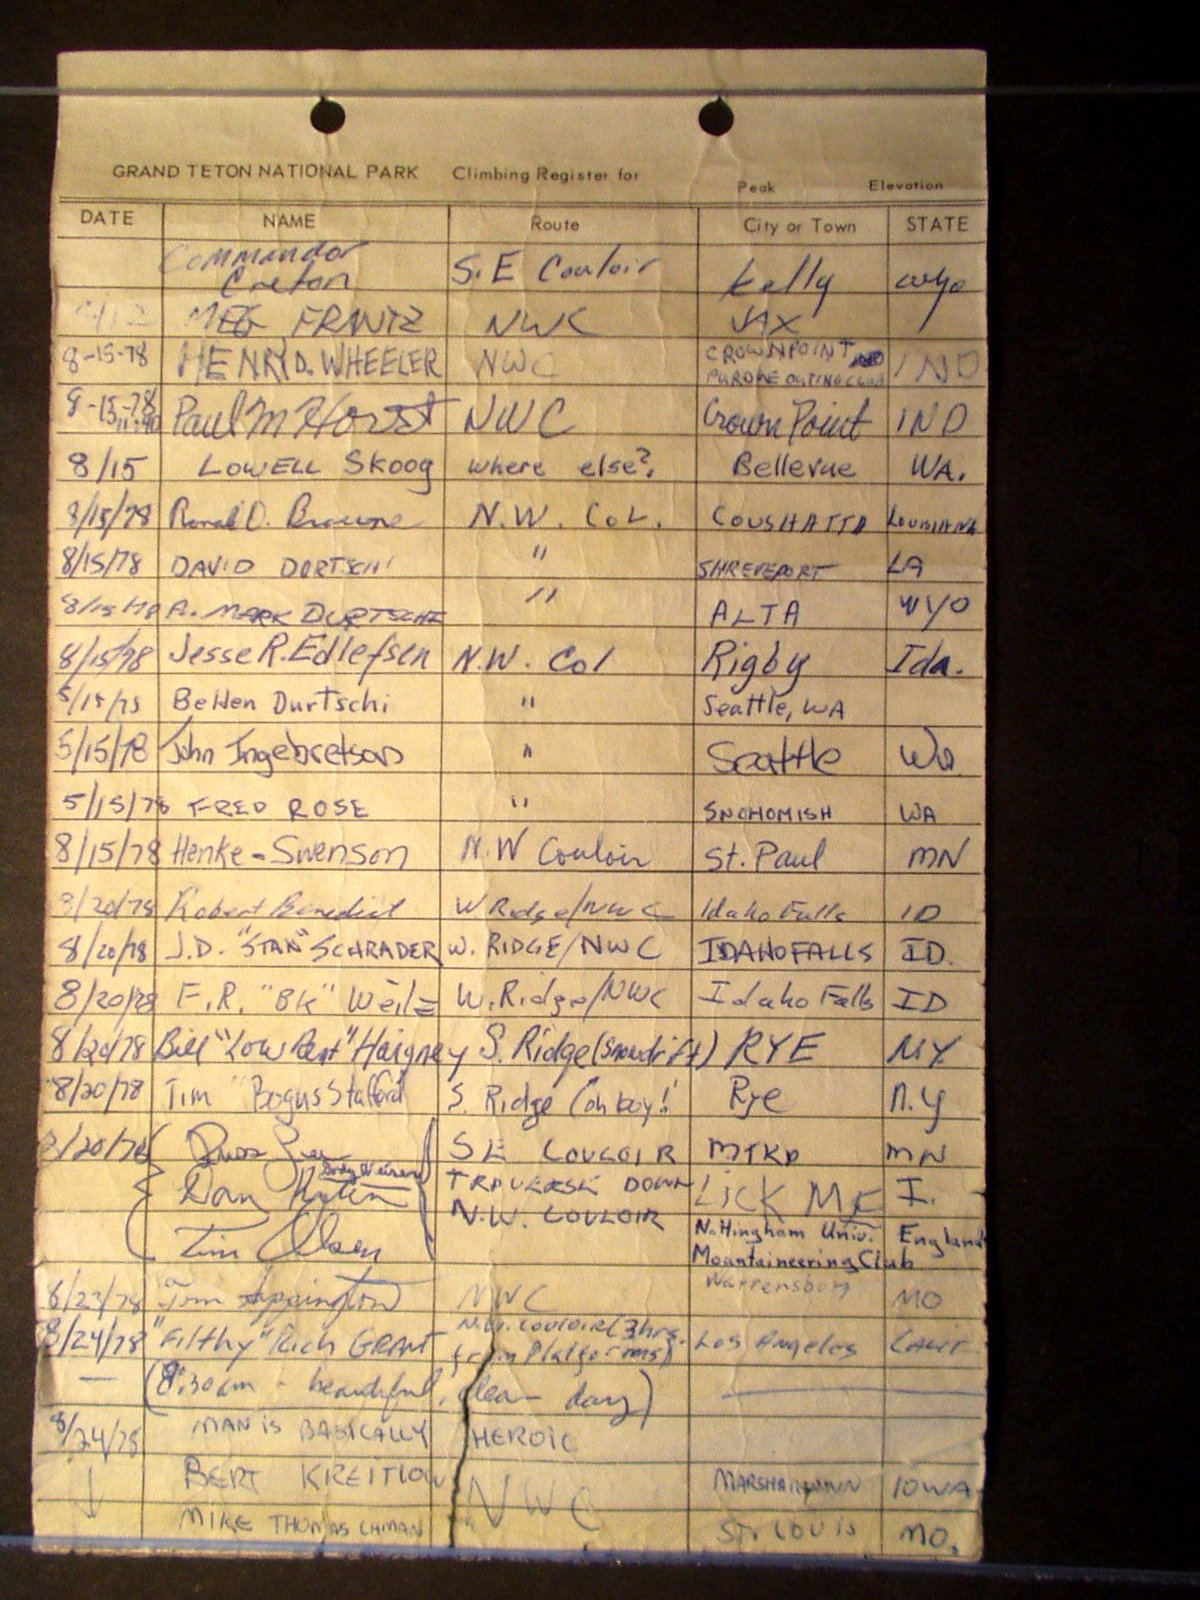 GRAND TETON NATIONAL PARK Climbing Register for Peak Elevation
DATE NAME Route City or Town STATE
Commandor Creton S.E Couloir Kelly Wyo
MEG FRANTZ NWC JAX
8-15-78 HENRY D. WHEELER NWC CROWNPOINT IND
PURDUE OUTING CLUB
8-15-78 Paul M Horst NWC Crown Point IND
8/15 LOWELL Skoog where else? Bellevue WA.
8/15/78 Ronal D. Browne N.W. Col. COUSHATTA LOUISIANA
8/15/78 DAVID DURTSCHI " SHREVEPORT LA
8/15/78 A. MARK DURTSCHI " ALTA WYO
8/15/78 Jesse R. Edlefsen N.W. Col Rigby Ida.
5/15/78 Durtschi " Seattle, WA
5/15/78 John Ingebretson " Seattle Wa.
5/15/78 FRED ROSE " SNOHOMISH WA
8/15/78 Henke-Swenson N.W Couloir St. Paul MN
8/20/78 Robert Benedict W Ridge/NWC Idaho Falls ID
8/20/78 J.D. "STAN" SCHRADER W. RIDGE/NWC IDAHO FALLS ID.
8/20/78 F.R. "BK" W. Ridge/NWC Idaho Falls ID
8/20/78 Bill "Low Haigney S. Ridge (Snowdrift) RYE NY
8/20/78 Tim "Bogus Stafford S. Ridge Oh boy! Rye N.Y
8/20/78 Russ SE COULOIR MTKA MN
Dan TRAVERSE DOWN LICK ME I.
Tim Olsen N.W. COULOIR
Nottingham Univ. England
Mountaineering Club
8/23/78 Tom NWC Warrensburg MO
8/24/78 "Filthy" Rich GRANT N.W. COULOIR (3hrs. from Platforms) Los Angeles CALIF.
— (8:30am - beautiful, clear day)
8/24/78 MAN IS BASICALLY HEROIC
↓ BERT KREITLOW NWC MARSHALLTOWN IOWA
MIKE THOMAS ST. LOUIS MO.